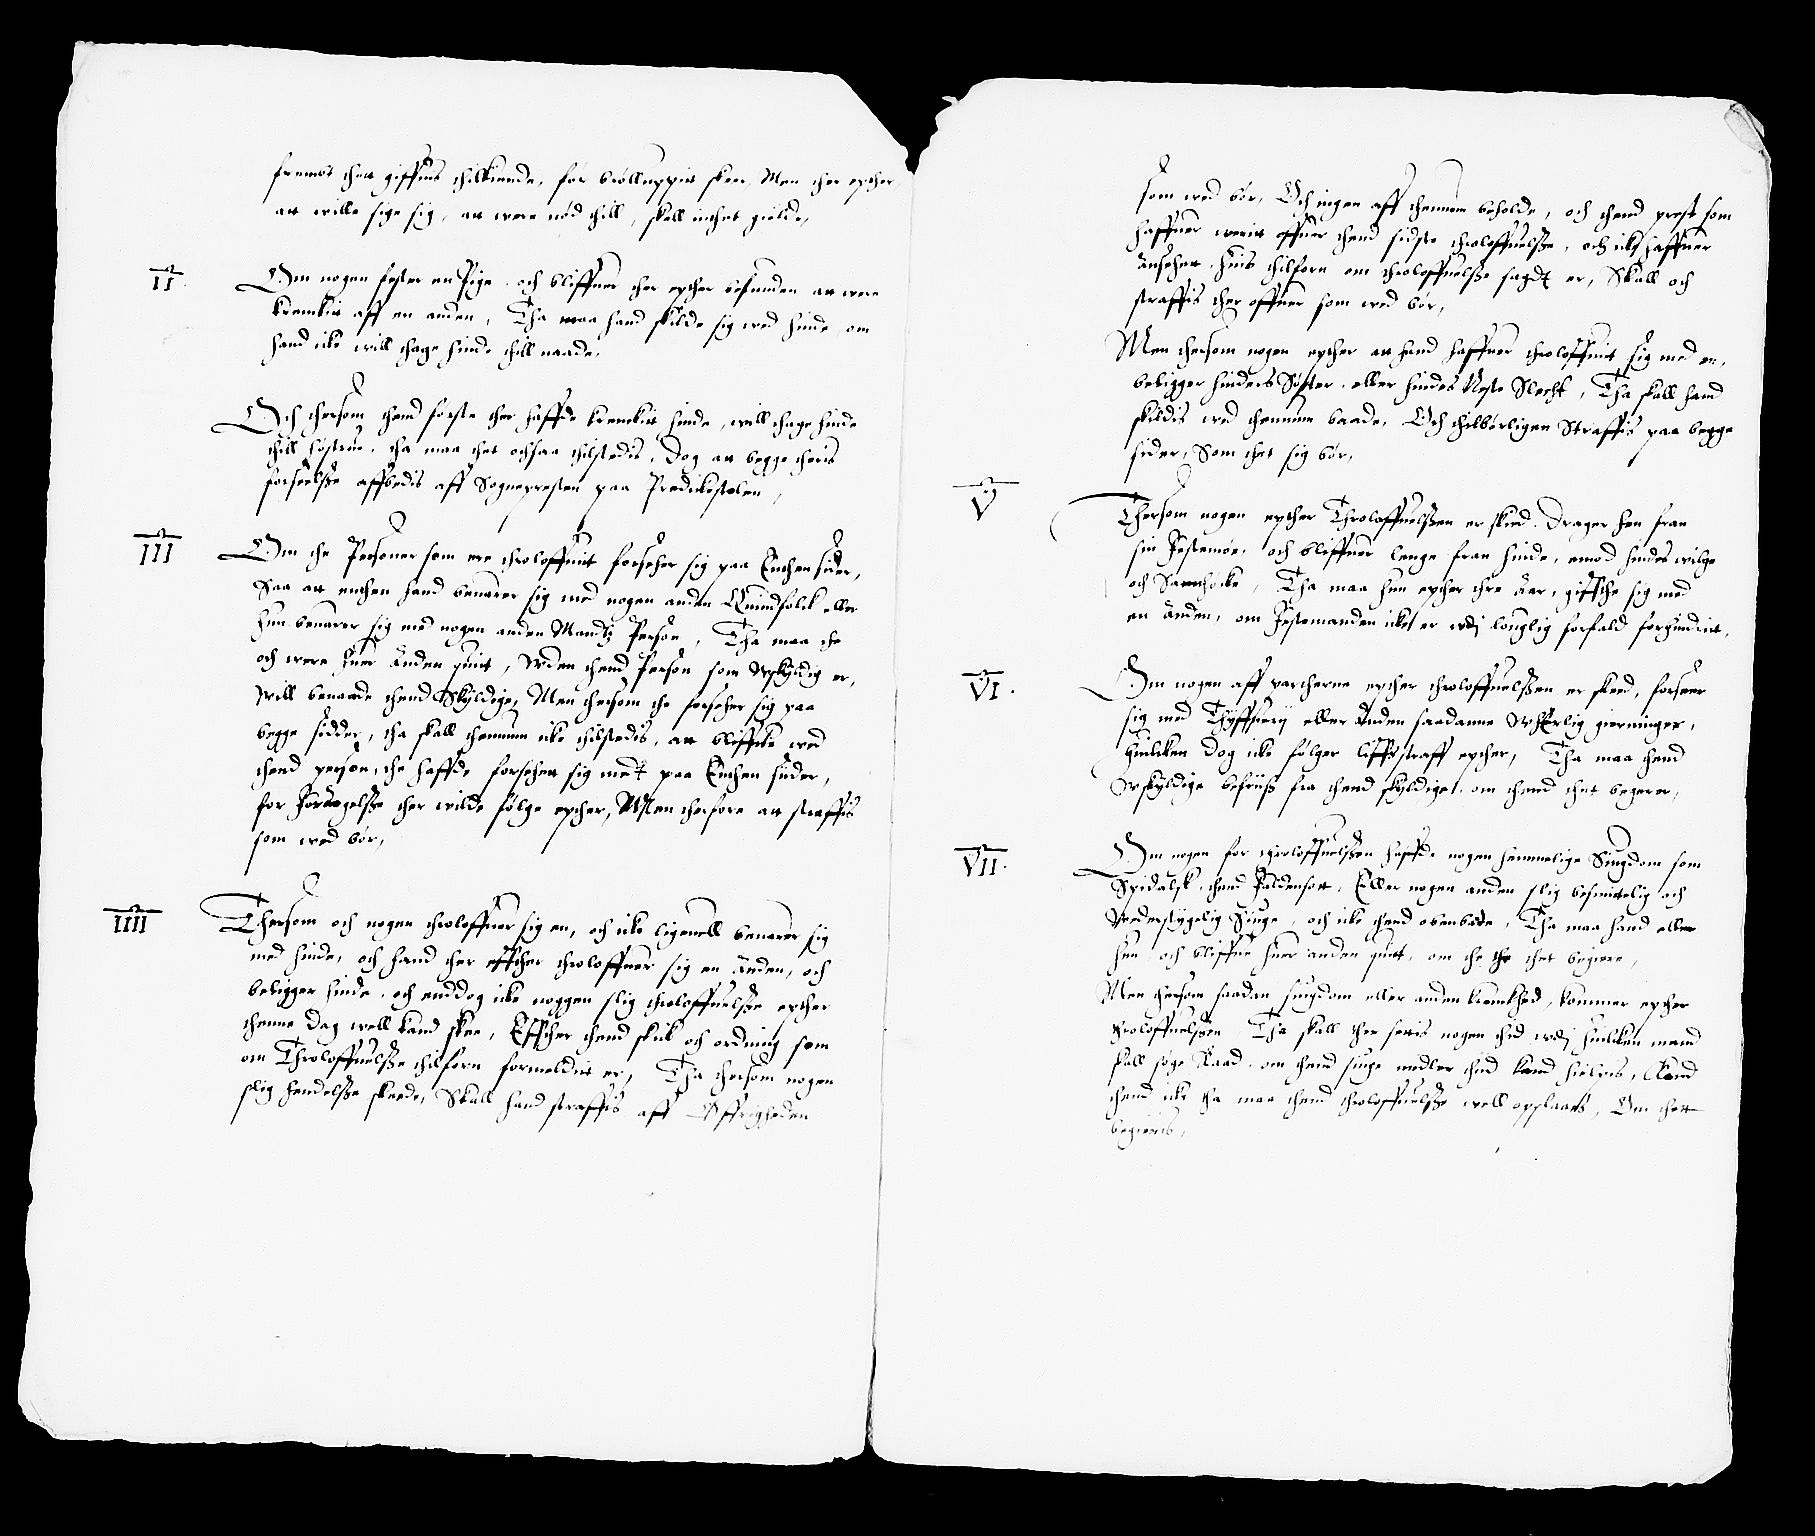 fremot thet giffuis thilkiende, før brølluppit skeer, Men ther epther
att wille sige sig, att were nød thill, skall inthet gielde,
II.
Om nogen fester en Pige, och bliffuer ther epther befunden att were
krenkit aff en anden, Tha maa hand skilde sig wed hinde, om
hand icke will thage hinde thill naade.
Och thersom thend første ther haffde krenkit hinde, will thage hinde
thill høstrue, tha maa thet ochsaa thilstedis, Dog att begge theris
forseelsse affbedis aff Sognepresten paa Predickestolen,
III
Om the Personer som ere throloffuit forseher sig paa Enthen sider,
Saa att enthen hand benarer sig med nogen anden Quindfolck eller
hun benarer sig med nogen anden Mandtz Person, Tha maa the
och were huer anden quit, Vden thend Person som Vskyldig er,
Will benaade thend Skyldige, Men thersom the forseher sig paa
begge sidder, tha skall thennum icke thilstedis, att bliffue wed
thend person, the haffde forsehett sig mett paa Enthen sider,
for Forargelsse ther wilde følge epther, Men therfore att straffis
som wed bør,
IIII
Thersom och nogen throloffuer sig en, och icke ligeuell benarer sig
med hinde, och hand ther effther throloffuer sig en anden, och
beligger hinde, och enddog icke noggen slig throloffuelsse epther
thenne dag well kand skee, Effther thend skick och ordning som
om Throloffuelsse thilforn formeldit er, Tha thersom nogen
slig hendelsse skeede, Skall hand straffis aff Øffrigheden
som wed bør, Och ingen aff thennom beholde, och thend prest som
haffuer werit offuer thend sidste throloffuelsse, och icke haffuer
ansehett, huis thilforn om throloffuelsse sagdt er, Skall och
straffis ther offuer som wed bør,
Men thersom nogen epther att hand haffuer throloffuit sig med en,
beligger hinders Søster, eller hindes Neste Slecht, Tha skall hand
skildis wed thennum baade, Och thilbørligen Straffis paa begge
sider, Som thet sig bør,
V
Thersom nogen epther Throloffuelssen er skeed, drager hen fran
sin Festemøe, och bliffuer lenge fran hinde, emod hindes wilge
och Samthøcke, Tha maa hun epther thre Aar, giffthe sig med
en anden, om Festemanden icke er wdj louglig forfald forhindrit,
VI.
Om nogen aff partherne epther throloffuelssen er skeed, forseer
sig med Thyffuerij eller anden saadanne Vherlig gierninger,
huilcken dog icke følger liffs straff epther, Tha maa thend
Vskyldige befriiss fra thend skyldige, om thend thet begerer,
VII.
Om nogen for throloffuelssen haffde nogen hemmelige Siugdom som
Spidalsk, thend Faldensott, Eller nogen anden slig besmittelig och
Wederstygelig Siuge, och icke thend obenbare, Tha maa hand eller
hun och bliffue huer anden quit, om the the thet begiere,
Men thersom saadan siugdom eller anden kranckhed, kommer epther
throloffuelssen Tha skall ther settis nogen thid wdj huilcken mand
skall søge Raad, om thend siuge medler thid kand hielpis, Kand
thend icke tha maa thend throloffuelsse well opslaaes, Om thett
begieris,